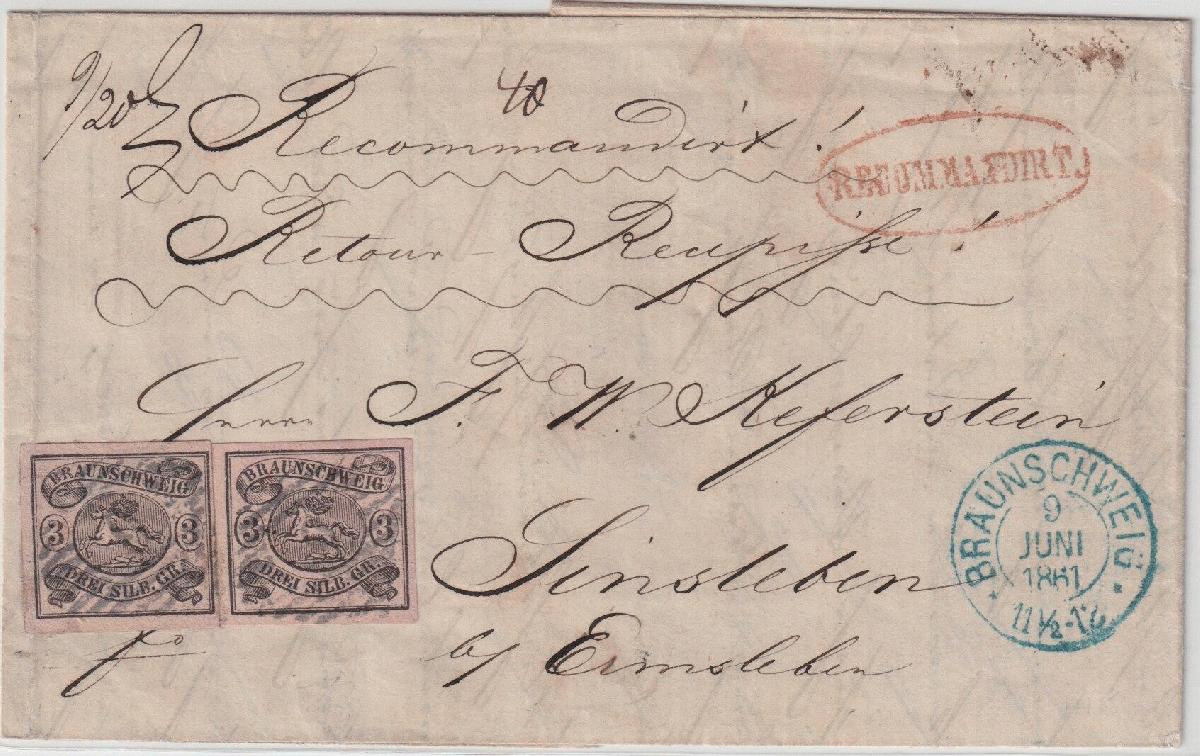 9/20
40
Recommandirt!
RECOMMANDIRT.
Retour-Recepisse!
Herrn F. W. Keferstein
BRAUNSCHWEIG
3 3
DREI SILB. GR.
BRAUNSCHWEIG
3 3
DREI SILB. GR.
Sinsleben
b/ Ermsleben
fco
BRAUNSCHWEIG
9
JUNI
1861
11½-12